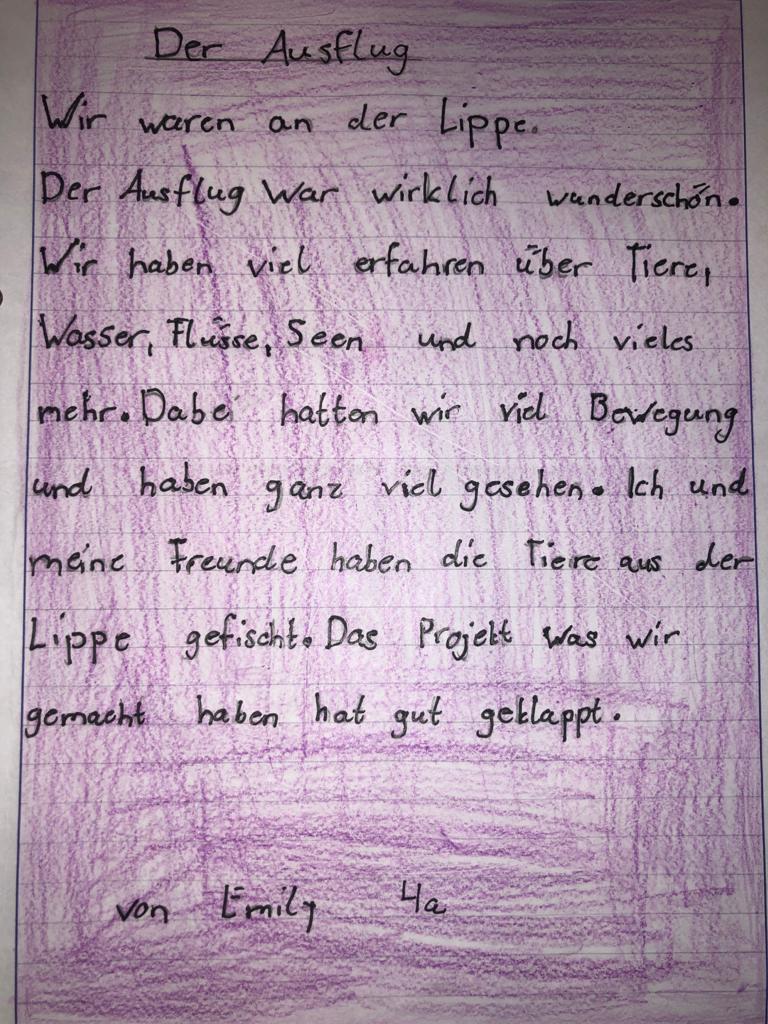 Der Ausflug
Wir waren an der Lippe.
Der Ausflug war wirklich wunderschön.
Wir haben viel erfahren über Tiere,
Wasser, Flüsse, Seen und noch vieles
mehr. Dabei hatten wir viel Bewegung
und haben ganz viel gesehen. Ich und
meine Freunde haben die Tiere aus der
Lippe gefischt. Das Projekt was wir
gemacht haben hat gut geklappt.
von Emily 4a